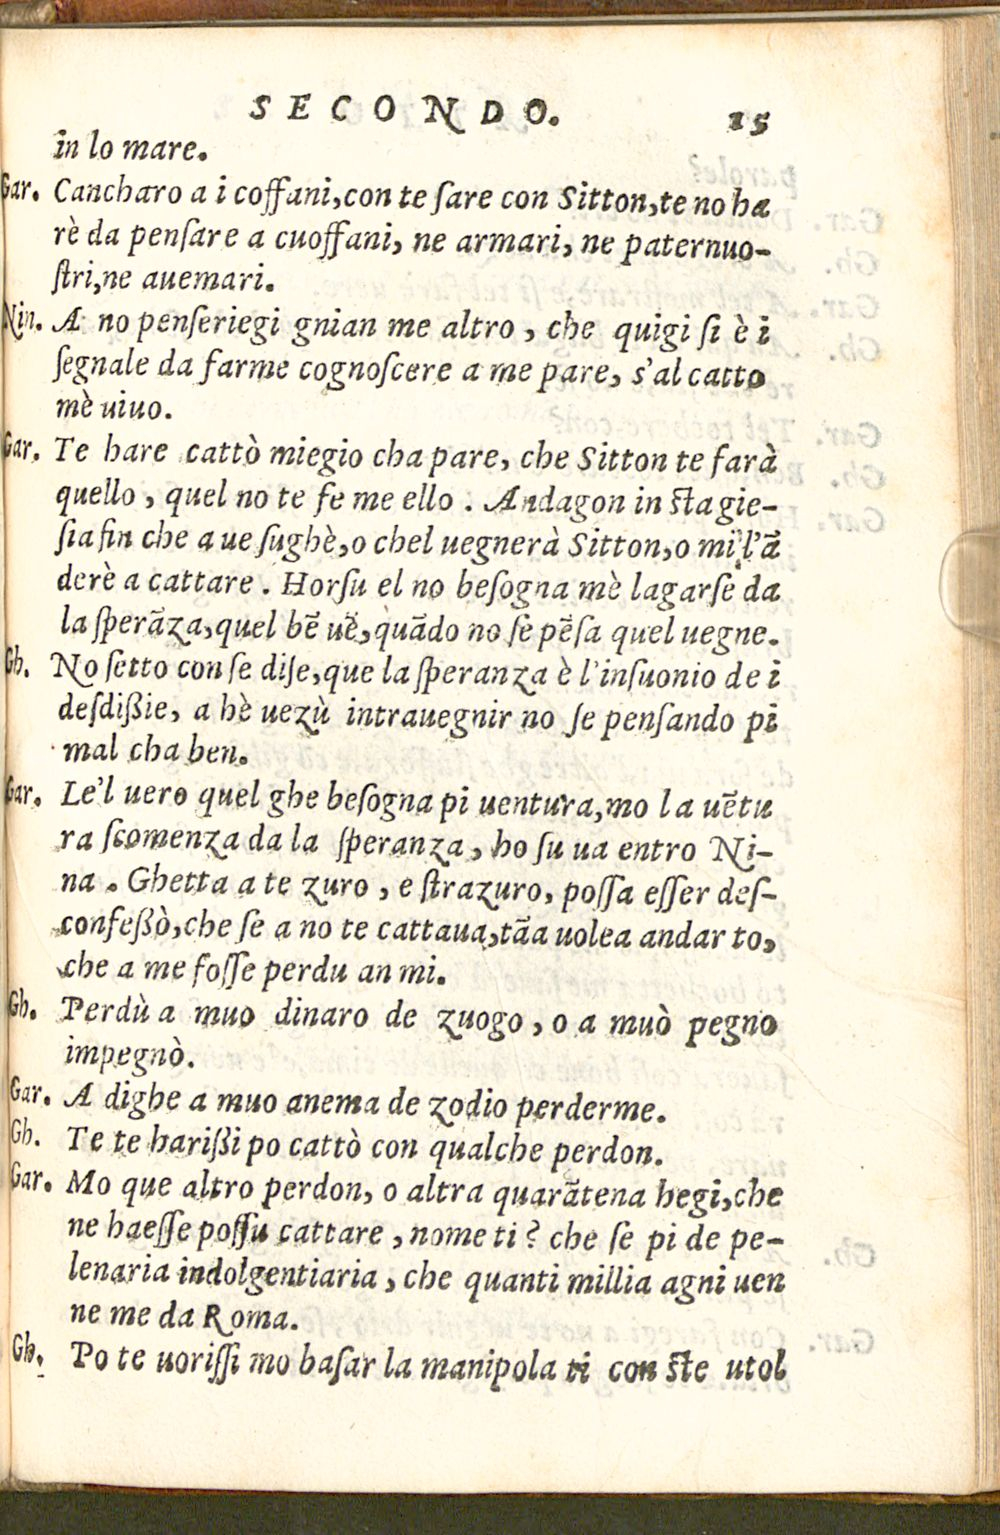 SECONDO. 15
in lo mare.
Gar. Cancharo a i coffani, con te sare con Sitton, te no ha
rè da pensare a cuoffani, ne armari, ne paternuo-
stri, ne auemari.
Nin. A no penseriegi gnian me altro, che quigi si è i
segnale da farme cognoscere a me pare, s'al catto
mè uiuo.
Gar. Te hare cattò miegio cha pare, che Sitton te farà
quello, quel no te fe me ello. Andagon in sta gie-
sia fin che a ue sughè, o chel uegnerà Sitton, o mi l'ā
derè a cattare. Horsu el no besogna mè lagarse da
la sperāza, quel bē uē, quādo no se pēsa quel uegne.
Gh. No setto con se dise, que la speranza è l'insuonio de i
desdißie, a hè uezù intrauegnir no se pensando pi
mal cha ben.
Gar. Le'l uero quel ghe besogna pi uentura, mo la uētu
ra scomenza da la speranza, ho su ua entro Ni-
na. Ghetta a te zuro, e strazuro, possa esser des-
confeßò, che se a no te cattaua, tāa uolea andar to,
che a me fosse perdu an mi.
Gh. Perdù a muo dinaro de zuogo, o a muò pegno
impegnò.
Gar. A dighe a muo anema de zodio perderme.
Gh. Te te harißi po cattò con qualche perdon.
Gar. Mo que altro perdon, o altra quarātena hegi, che
ne haesse possu cattare, nome ti? che se pi de pe-
lenaria indolgentiaria, che quanti millia agni uen
ne me da Roma.
Gh. Po te uorissi mo basar la manipola ti con ste utol